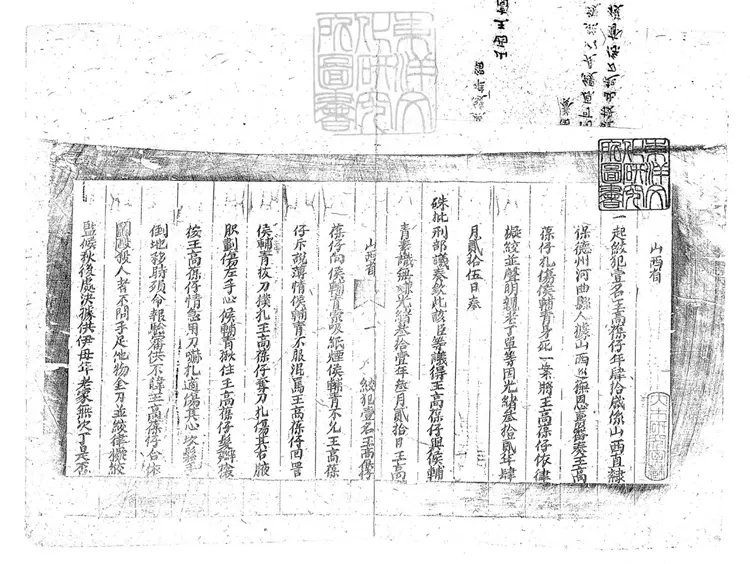 山西省
一起絞犯壹名王高葆仔年肆拾歲係山西直隸
保德州河曲縣人據山西巡撫恩壽審奏王高
葆仔扎傷侯輔青身死一案將王高葆仔依律
擬絞並聲明親老丁單等因光緒叁拾貳年肆
月貳拾伍日奉
硃批刑部議奏欽此該臣等議得王高葆仔與侯輔
青素識無嫌光緒叁拾壹年叁月貳拾日王高
山西省 一 絞犯壹名王高葆仔
葆仔向侯輔青索吸紙煙侯輔青不允王高葆
仔斥說薄情侯輔青不服混罵王高葆仔回詈
侯輔青拔刀撲扎王高葆仔奪刀扎傷其右腋
劃傷左手心侯輔青揪住王高葆仔髮辮
按王高葆仔情急用刀嚇扎適傷其心坎鬆手
倒地移時殞命報驗審供不諱王高葆仔合依
鬬毆殺人者不問手足他物金刃並絞律擬絞
監候秋後處決據供伊母年老家無次丁是否
東洋文化研究所圖書
東洋文化研究所圖書